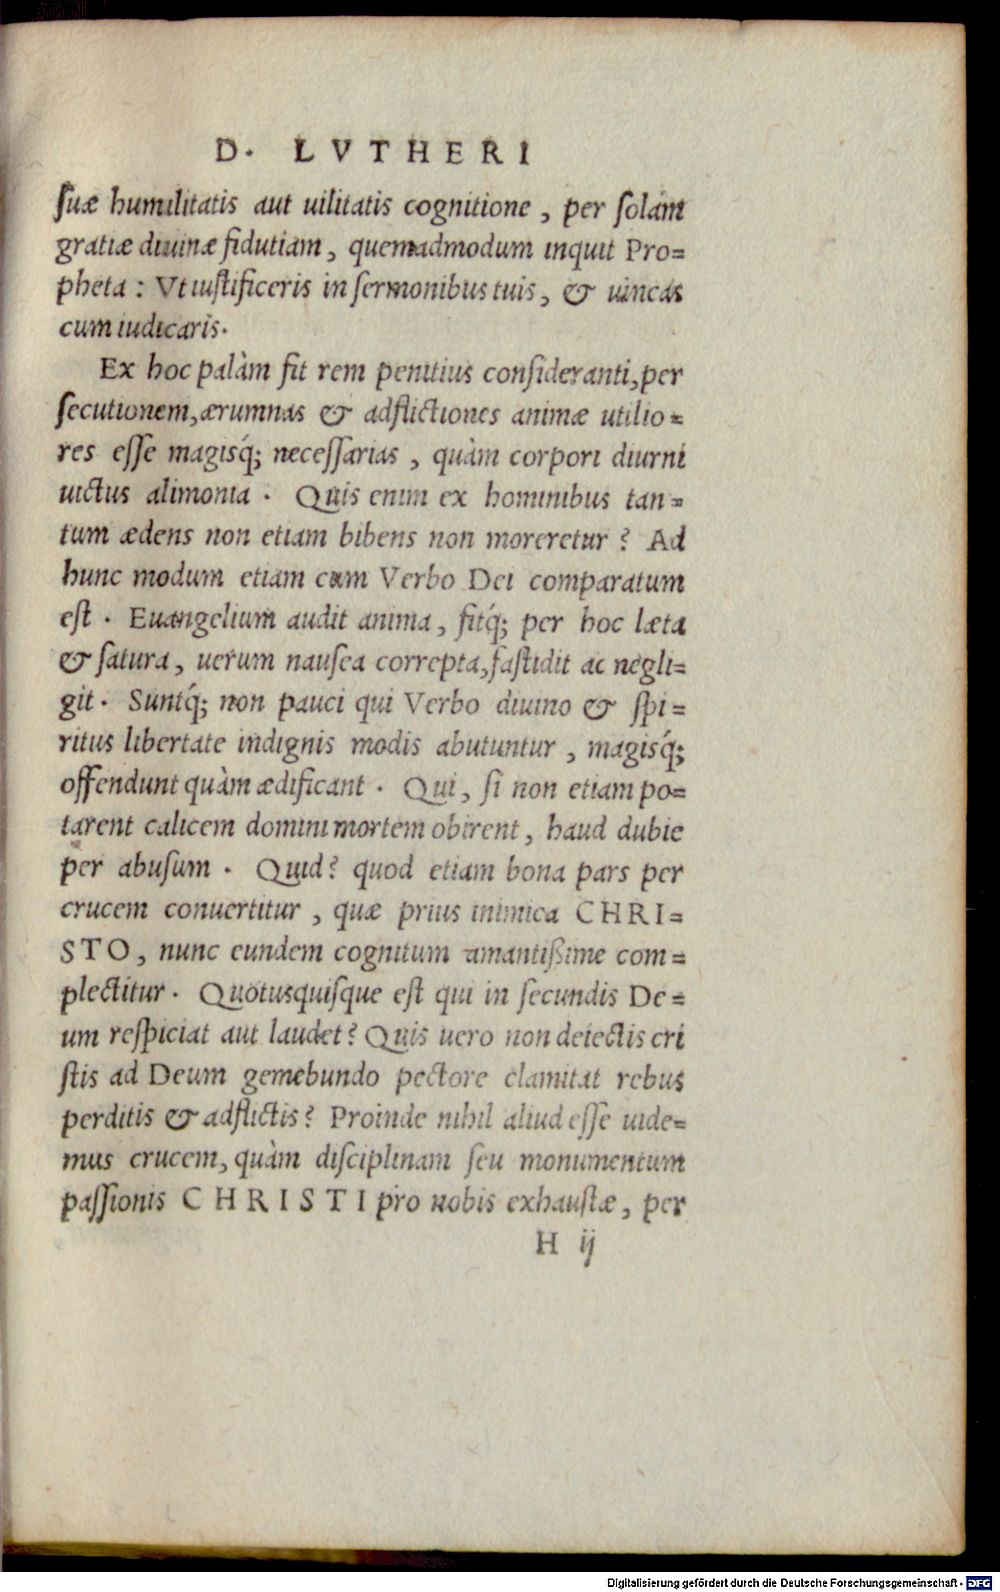 D. LVTHERI
suæ humilitatis aut uilitatis cognitione, per solam
gratiæ diuinæ fidutiam, quemadmodum inquit Pro=
pheta: Vt iustificeris in sermonibus tuis, & uincas
cum iudicaris.
Ex hoc palàm fit rem penitius consideranti, per
secutionem, ærumnas & adflictiones animæ utilio=
res esse magisq́; necessarias, quàm corpori diurni
uictus alimonia. Quis enim ex hominibus tan=
tum ædens non etiam bibens non moreretur? Ad
hunc modum etiam cum Verbo Dei comparatum
est. Euangelium audit anima, fitq́; per hoc læta
& satura, uerum nausea correpta, fastidit ac negli=
git. Suntq́; non pauci qui Verbo diuino & spi=
ritus libertate indignis modis abutuntur, magisq́;
offendunt quàm ædificant. Qui, si non etiam po=
tarent calicem domini mortem obirent, haud dubie
per abusum. Quid? quod etiam bona pars per
crucem conuertitur, quæ prius inimica CHRI=
STO, nunc eundem cognitum amantißime com=
plectitur. Quotusquisque est qui in secundis De=
um respiciat aut laudet? Quis uero non deiectis cri
stis ad Deum gemebundo pectore clamitat rebus
perditis & adflictis? Proinde nihil aliud esse uide=
mus crucem, quàm disciplinam seu monumentum
passionis CHRISTI pro nobis exhaustæ, per
H ij
Digitalisierung gefördert durch die Deutsche Forschungsgemeinschaft - DFG